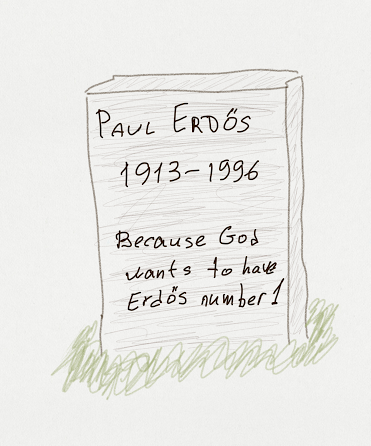 PAUL ERDŐS
1913-1996
Because God
wants to have
Erdős number 1